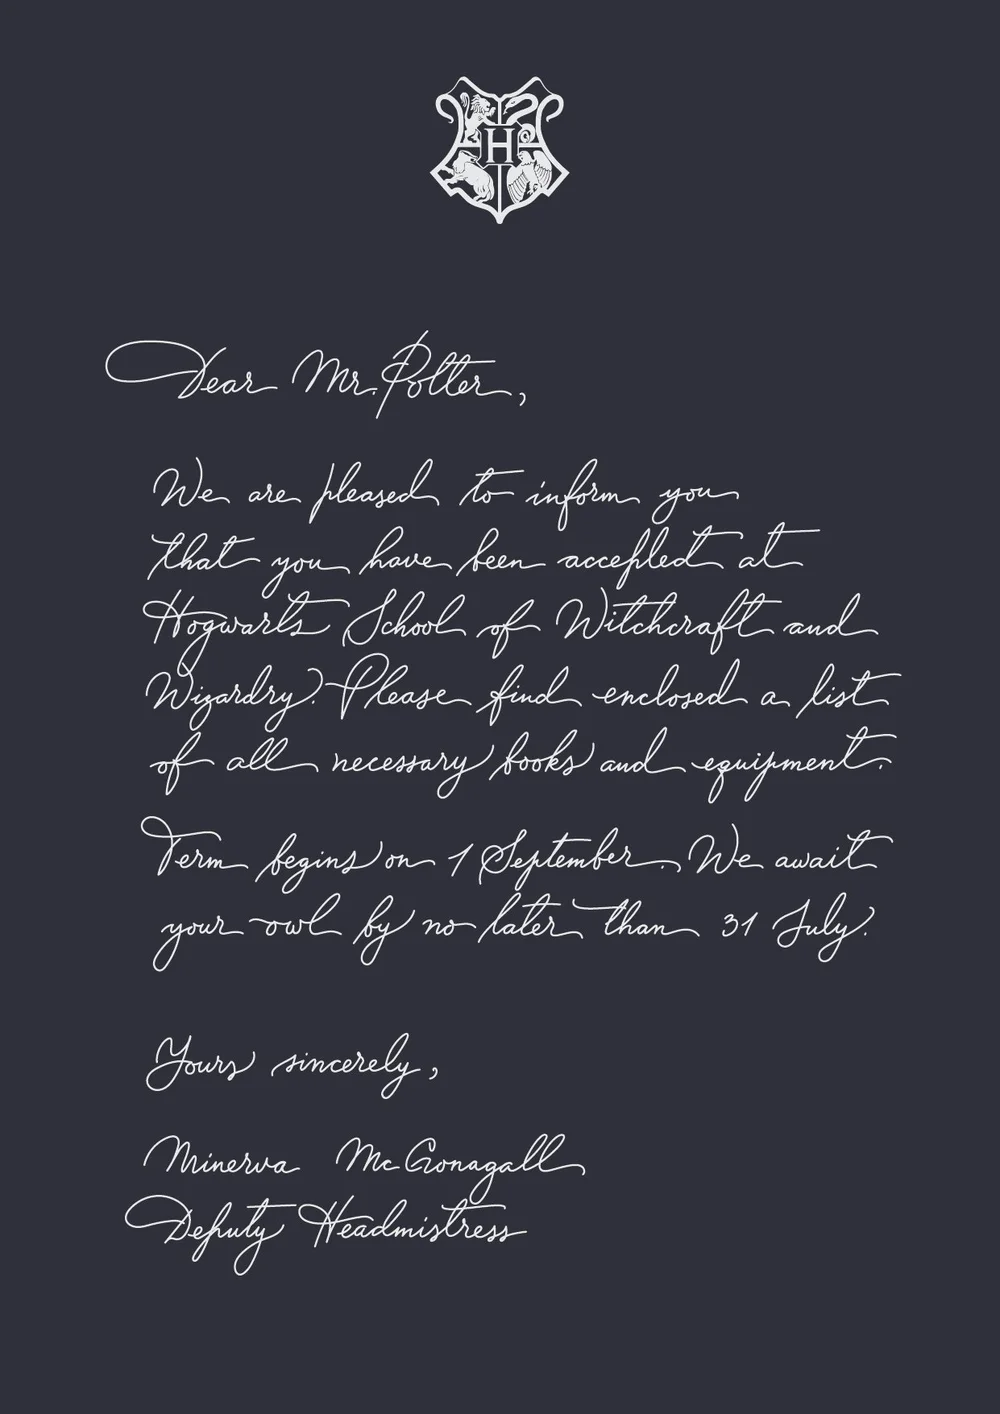 H
Dear Mr. Potter,
We are pleased to inform you
that you have been accepted at
Hogwarts School of Witchcraft and
Wizardry. Please find enclosed a list
of all necessary books and equipment.
Term begins on 1 September. We await
your owl by no later than 31 July.
Yours sincerely,
Minerva McGonagall
Deputy Headmistress